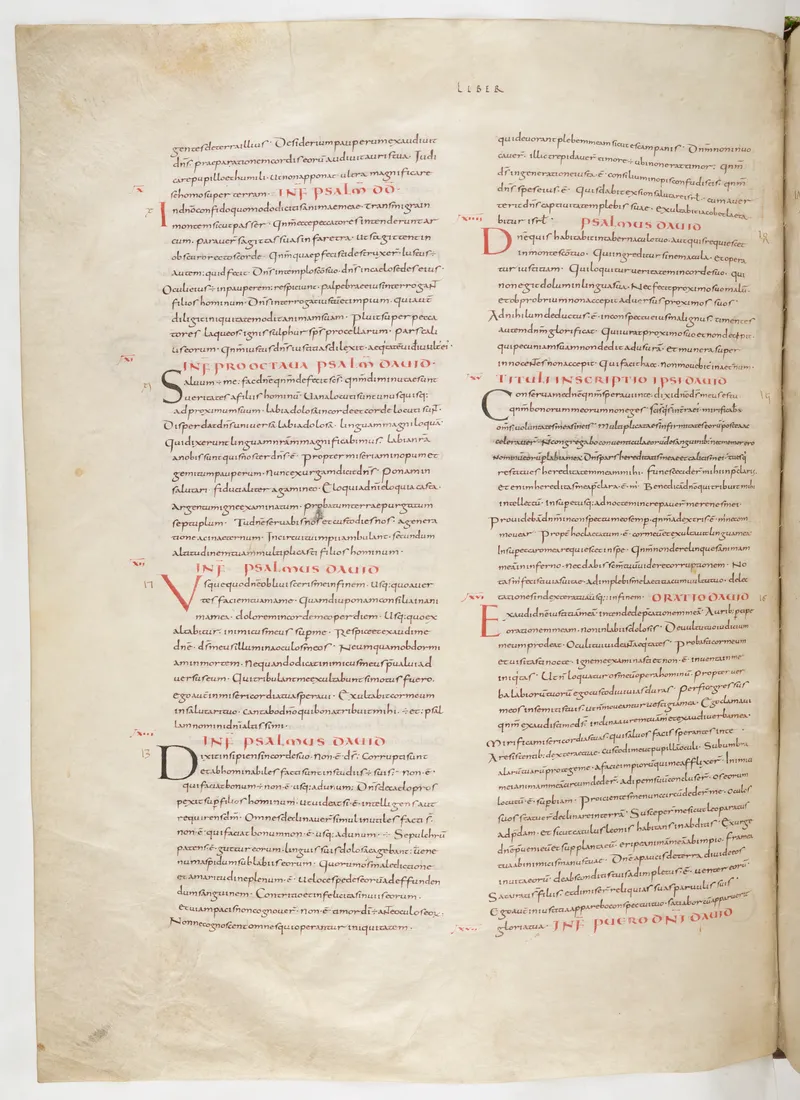 LIBER
gentes de terra illius. Desiderium pauperum exaudiuit
dn̄s praeparationem cordis eorū audiuit auris tua. Judi
care pupillo et humili. Ut non apponat ultra magnificare
se homo super terram. INF PSALM DD.
x
In dn̄o confido quomodo dicitis animae meae. Transmigra in
montem sicut passer. Qnm̄ ecce peccatores intenderunt ar
cum. parauer̄ sagittas suas in faretra. Ut sagittent in
obscuro rectos corde. Qnm̄ quae perfecisti destruxer̄. Iustus ÷
autem. quid fecit. Dn̄s in templo sc̄o suo. dn̄s in caelo sedes eius
Oculi eius ÷ in pauperem. respiciunt. palpebrae eius interrogant
filios hominum. Dn̄s interrogat iustū et impium. qui aut̄
diligit iniquitatem odit animam suam. Pluit super pecca
tores laqueos. ignis sulphur sps̄ procellarum. pars cali
xi
INF PRO OCTAUA PSALM DAUID.
Saluum ÷ me fac dn̄e qnm̄ defecit sc̄s. qnm̄ diminutae sunt
ueritates a filiis hominū. Uana locuti sunt unusquisq;
ad proximum suum. labia dolosa in corde et corde locuti sunt.
Disperdat dn̄s uniuersa labia dolosa. linguam magniloqua
Qui dixerunt linguam nr̄am magnificabimus. labia nr̄a
a nobis sunt quis noster dn̄s ē. Propter miseriam inopum et
gemitum pauperum. Nunc exurgam dicit dn̄s. Ponam in
salutari fiducialiter agam in eo. Eloquia dn̄i eloquia casta.
Argentum igne examinatum. probatum terrae purgatum
septuplum. Tu dn̄e seruabis nos et custodies nos. a genera
tione ac in aeternum. In circuitu impii ambulant. secundum
altitudinem tuam multiplicasti filios hominum.
xii
INF PSALMUS DAUID
Usquequo dn̄e obliuisceris me in finem. Usq;quo auer
tes faciem tuam a me. Quamdiu ponam consilia in ani
ma mea. dolorem in corde meo per diem. Usq;quo ex
altabitur. inimicus meus sup̄ me. Respice et exaudi me
dn̄e. ds̄ meus illumina oculos meos. Ne umquam obdormi
am in mortem. Nequando dicat inimicus meus p̄ualui ad
uersus eum. Qui tribulant me exultabunt si motus fuero.
ego aut̄ in misericordia tua speraui. Exultabit cor meum
in salutari tuo. cantabo dn̄o qui bona tribuit mihi. ÷ et psal
lam nomini dn̄i altissimi.
xiii
INF PSALMUS DAUID
13
Dixit insipiens in corde suo. Non ē ds̄. Corrupti sunt
et abhominabiles facti sunt in studiis ÷ suis. non ē.
qui faciat bonum ÷ non ē usq; ad unum. Dn̄s de caelo pros
pexit sup̄ filios hominum. ut uideat si ē intellegens aut
requirens dm̄. Omnes declinauer̄ simul inutiles facti s̄.
non ē qui faciat bonum non ē usq; ad unum. ÷ Sepulchrū
patens ē guttur eorum. linguis suis dolose agebant. uene
num aspidum sub labiis eorum. Quorum os maledictione
et amaritudine plenum ē. Ueloces pedes eorū ad effunden
dum sanguinem. Contritio et infelicitas in uiis eorum.
et uiam pacis non cognouer̄. non ē timor dī ante oculos eor̄.
Nonne cognoscent omnes qui operantur iniquitatem.
qui deuorant plebem meam sicut escam panis. Dnm̄ non inuo
cauer̄. illic trepidauer̄ timore ÷ ubi non erat timor. Qnm̄
ds̄ in generatione iusta ē. consilium inopis confudistis. qnm̄
dn̄s spes eius ē. Quis dabit ex sion salutare isrl̄. cum auer
terit dn̄s captiuitatem plebis suae. exultabit iacob et laeta
xiiii
bitur isrl̄. PSALMUS DAUID
Dn̄e quis habitabit in tabernaculo tuo. aut quis requiescet
in monte sc̄o tuo. Qui ingreditur sine macula. et opera
tur iustitiam. Qui loquitur ueritatem in corde suo. qui
non egit dolum in lingua sua. Nec fecit proximo suo malū.
et obprobrium non accepit aduersus proximos suos.
Ad nihilum deductus ē in conspectu eius malignus. timentes
autem dnm̄ glorificat. Qui iurat proximo suo et non decipit.
qui pecuniam suam non dedit ad usurā. et munera super
innocentes non accepit. Qui facit haec. non mouebit̄ in aeternum.
xv
TITULI INSCRIPTIO IPSI DAUID
Conserua me dn̄e qnm̄ speraui in te. dixi dn̄o ds̄ meus es tu
qnm̄ bonorum meorum non eges. Sc̄is qui in terra ei. mirificabit
restitues hereditatem meam mihi. Funes ceciderunt mihi in p̄claris.
et enim hereditas mea p̄clara. ē. m̄. Benedicā dn̄m qui tribuit mihi
intellectū. Insuper usq; ad noctem increpauer̄ me renes mei.
Prouidebā dnm̄ in conspectu meo semp̄. qnm̄ a dextris ē m̄ ne com
mouear. Propt̄ hoc laetatum ē cor meū et exultauit lingua mea.
Insuper et caro mea requiescet in spe. Qnm̄ non derelinques animam
meam in inferno. nec dabis sc̄m tuū uidere corruptionem. No
tas m̄ fecisti uias uitae. adimplebis me laetitia cum uultu tuo. delec
xvi
tationes in dextera tua usq; in finem. ORATIO DAUID
Exaudi dn̄e iustitiā meā. intende deprecationem meā. Aurib; p̄cipe
orationem meam. non in labiis dolosis. De uultu tuo iudicium
meum prodeat. Oculi tui uideant aequitates. Probasti cor meum
et uisitasti nocte. igne me examinasti et non ē inuenta in me
iniq̄tas. Ut n̄ loquatur os meū opera hominū. propter uer
ba labiorū tuorū ego custodiui uias duras. Perfice gressus
meos in semitis tuis. ut n̄ moueantur uestigia mea. Ego clamaui
qnm̄ exaudisti me ds̄. inclina aurem tuā m̄ et exaudi uerba mea.
Mirifica misericordias tuas. qui saluos facis sperantes in te.
A resistentib; dexterae tuae. custodi me ut pupillā oculi. Sub umbra
alarū tuarū protege me. a facie impiorū qui me afflixer̄. Inimici
mei animam meam circumdeder̄. adipem suū concluser̄. os eorum
locutū ē supbiam. Proicientes me nunc circūdeder̄ me. oculos
suos statuer̄ declinare in terrā. Susceper̄ me sicut leo paratus
ad p̄dam. et sicut catulus leonis habitans in abditis. Exurge
dn̄e p̄ueni eū et supplanta eū. eripe animā meā ab impio. framea
tuā ab inimicis manus tuae. Dn̄e a paucis de terra diuide eos
in uita eorū. de absconditis tuis adimplet̄ ē uenter eorū.
Saturati s̄ filiis. et dimiser̄ reliquias suas paruulis suis.
Ego aut̄ in iustitia apparebo conspectui tuo. satiabor cū apparuerit
xvii
gloria tua. INF PUERO DN̄I DAUID